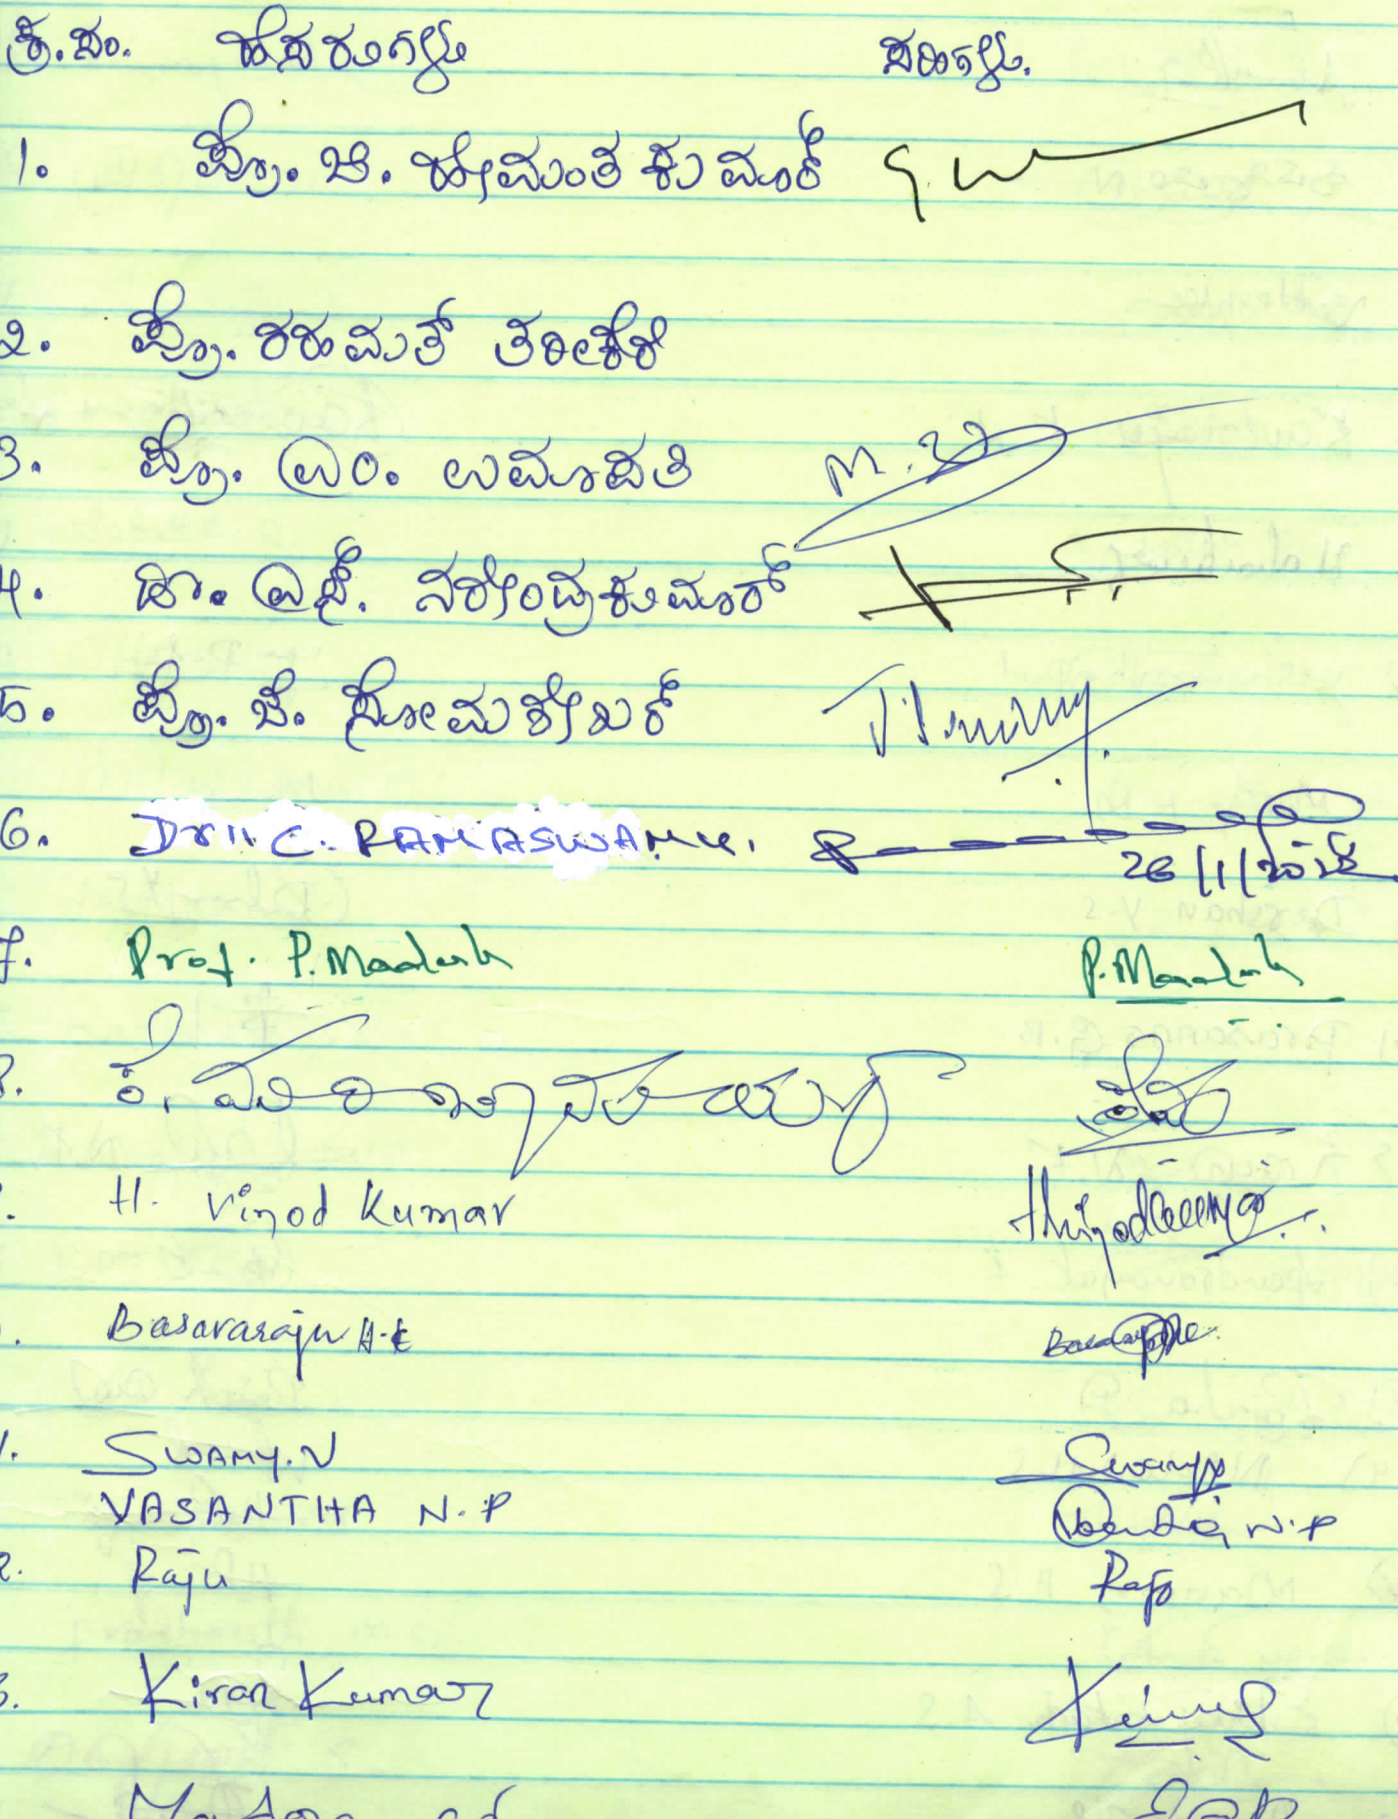 ಕ್ರ.ಸಂ. ಹೆಸರುಗಳು ಸಹಿಗಳು.
1. ಪ್ರೊ. ಜಿ. ಹೇಮಂತ ಕುಮಾರ್
೨. ಪ್ರೊ. ರಹಮತ್ ತರೀಕೆರೆ
೩. ಪ್ರೊ. ಎಂ. ಉಮಾಪತಿ
೪. ಡಾ. ಎಸ್. ನರೇಂದ್ರಕುಮಾರ್
೫. ಪ್ರೊ. ಜೆ. ಸೋಮಶೇಖರ್
6. Dr. C. RAMASWAMY.
26/1/2018
7. Prof. P. Madesh P. Madesh
H. Vinod Kumar
Basavaraju H.C
SWAMY.N Swamy
VASANTHA N.P N.P
Raju Raju
Kiran Kumar